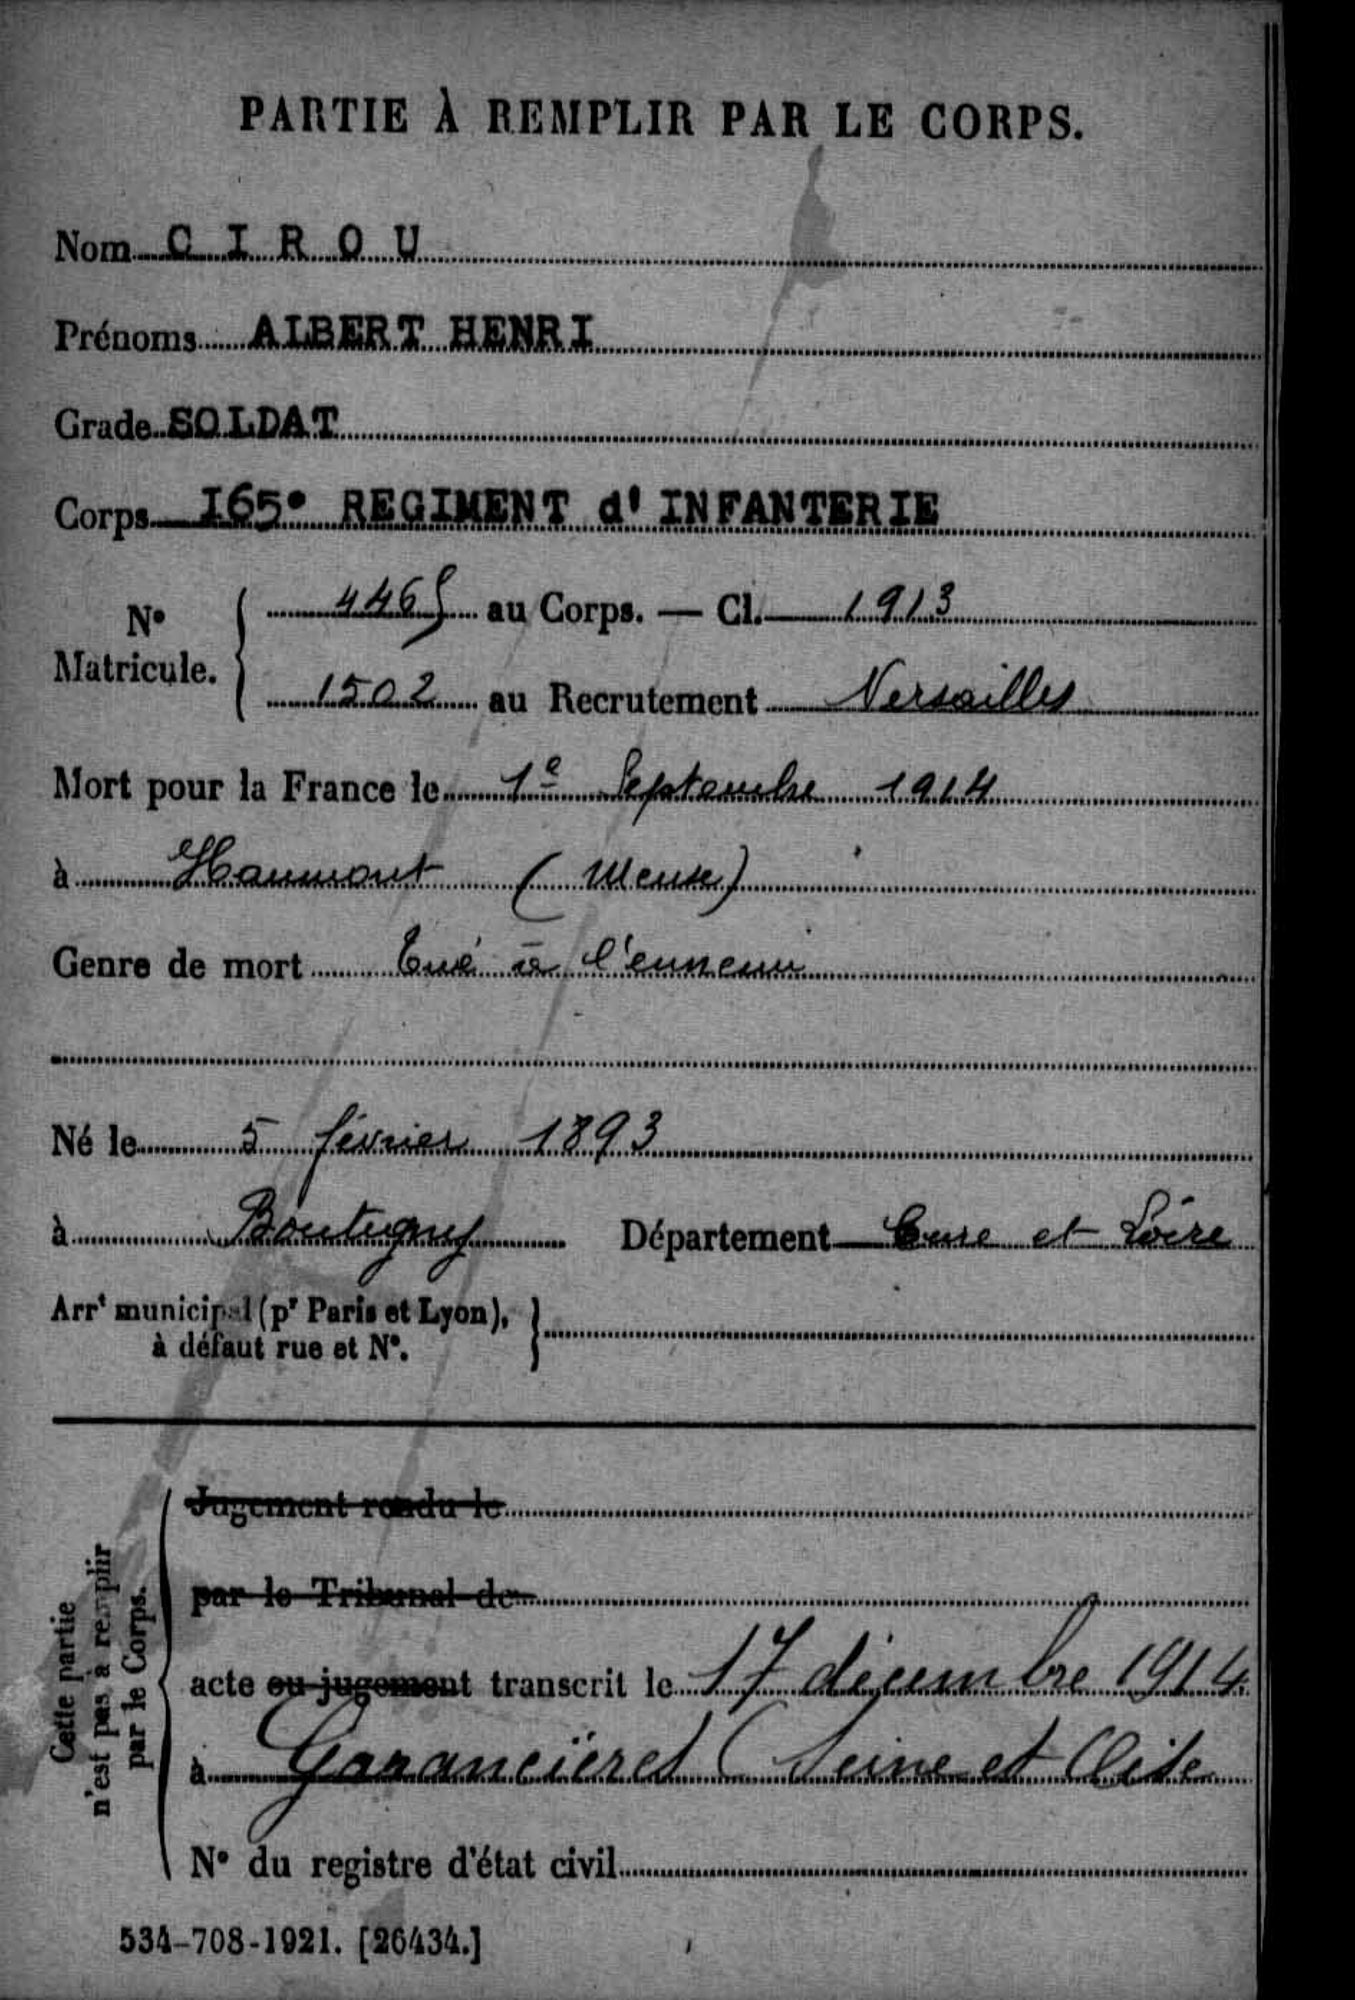 PARTIE À REMPLIR PAR LE CORPS.
Nom CIROU
Prénoms ALBERT HENRI
Grade SOLDAT
Corps I65e REGIMENT d' INFANTERIE
N° Matricule.
4465 au Corps. — Cl. 1913
1502 au Recrutement Versailles
Mort pour la France le 1e Septembre 1914
à Haumont (Meuse)
Genre de mort Tué à l'ennemi
Né le 5 février 1893
à Boutigny Département Eure et Loire
Arrt municipal (pr Paris et Lyon),
à défaut rue et N°.
Cette partie
n'est pas à remplir
par le Corps.
Jugement rendu le
par le Tribunal de
acte ou jugement transcrit le 17 décembre 1914
à Garancières (Seine et Oise
N° du registre d'état civil
534-708-1921. [26434.]